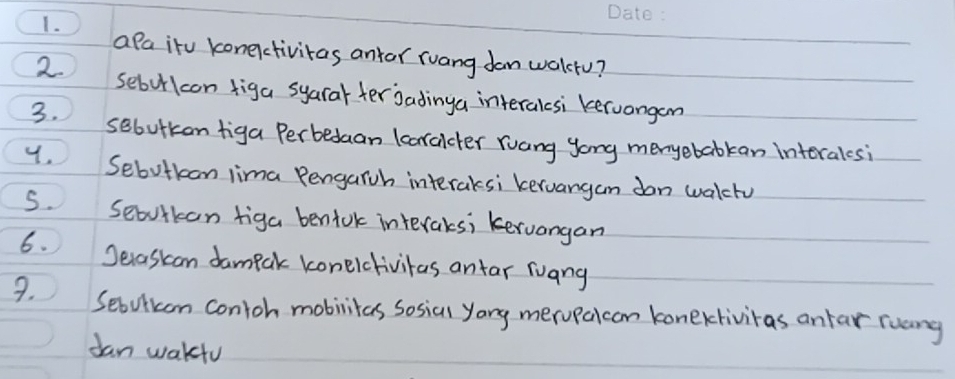 Date :
1. apa itu konektivitas antar ruang dan waktu?
2. Sebutkan tiga syarat terjadinya interaksi keruangan
3. Sebutkan tiga Perbedaan karakter ruang yang menyebabkan interaksi
4. Sebutkan lima Pengaruh interaksi keruangan dan waktu
5. Sebutkan tiga bentuk interaksi keruangan
6. Jelaskan dampak konektivitas antar ruang
7. Sebutkan contoh mobilitas Sosial yang merupakan konektivitas antar ruang
dan waktu